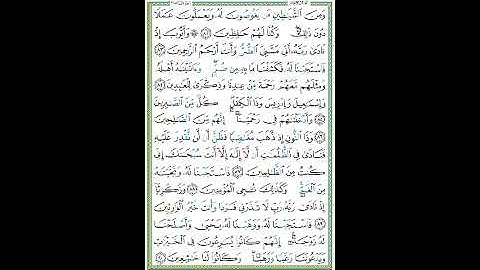 وَمِنَ ٱلشَّيَٰطِينِ مَن يَغُوصُونَ لَهُۥ وَيَعْمَلُونَ عَمَلًا
دُونَ ذَٰلِكَ ۖ وَكُنَّا لَهُمْ حَٰفِظِينَ ٨٢ ۞ وَأَيُّوبَ إِذْ
نَادَىٰ رَبَّهُۥٓ أَنِّى مَسَّنِىَ ٱلضُّرُّ وَأَنتَ أَرْحَمُ ٱلرَّٰحِمِينَ ٨٣
فَٱسْتَجَبْنَا لَهُۥ فَكَشَفْنَا مَا بِهِۦ مِن ضُرٍّ ۖ وَءَاتَيْنَٰهُ أَهْلَهُۥ
وَمِثْلَهُم مَّعَهُمْ رَحْمَةً مِّنْ عِندِنَا وَذِكْرَىٰ لِلْعَٰبِدِينَ ٨٤
وَإِسْمَٰعِيلَ وَإِدْرِيسَ وَذَا ٱلْكِفْلِ ۖ كُلٌّ مِّنَ ٱلصَّٰبِرِينَ
٨٥ وَأَدْخَلْنَٰهُمْ فِى رَحْمَتِنَآ ۖ إِنَّهُم مِّنَ ٱلصَّٰلِحِينَ
٨٦ وَذَا ٱلنُّونِ إِذ ذَّهَبَ مُغَٰضِبًا فَظَنَّ أَن لَّن نَّقْدِرَ عَلَيْهِ
فَنَادَىٰ فِى ٱلظُّلُمَٰتِ أَن لَّآ إِلَٰهَ إِلَّآ أَنتَ سُبْحَٰنَكَ إِنِّى
كُنتُ مِنَ ٱلظَّٰلِمِينَ ٨٧ فَٱسْتَجَبْنَا لَهُۥ وَنَجَّيْنَٰهُ
مِنَ ٱلْغَمِّ ۚ وَكَذَٰلِكَ نُۨجِى ٱلْمُؤْمِنِينَ ٨٨ وَزَكَرِيَّآ
إِذْ نَادَىٰ رَبَّهُۥ رَبِّ لَا تَذَرْنِى فَرْدًا وَأَنتَ خَيْرُ ٱلْوَٰرِثِينَ
٨٩ فَٱسْتَجَبْنَا لَهُۥ وَوَهَبْنَا لَهُۥ يَحْيَىٰ وَأَصْلَحْنَا
لَهُۥ زَوْجَهُۥٓ ۚ إِنَّهُمْ كَانُوا۟ يُسَٰرِعُونَ فِى ٱلْخَيْرَٰتِ
وَيَدْعُونَنَا رَغَبًا وَرَهَبًا ۖ وَكَانُوا۟ لَنَا خَٰشِعِينَ ٩٠